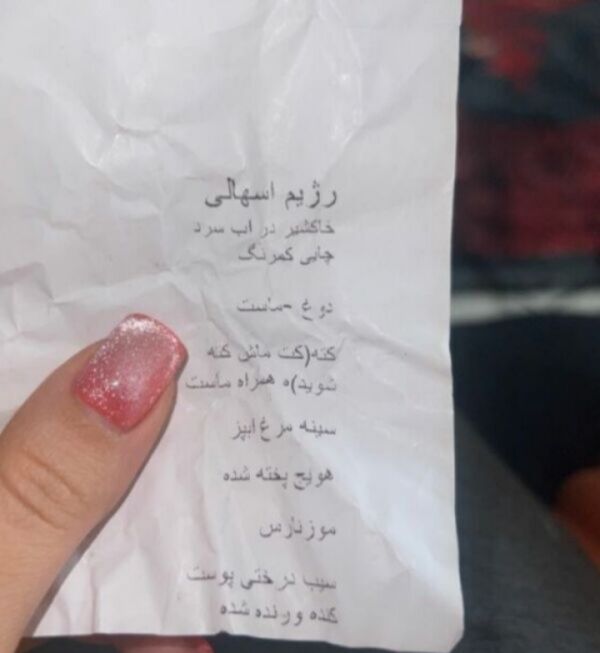 رژیم اسهالی
خاکشیر در اب سرد
چایی کمرنگ
دوغ -ماست
کته(کت ماش کته
شوید)ه همراه ماست
سینه مرغ ابپز
هویج پخته شده
موز نارس
سیب درختی پوست
کنده و رنده شده